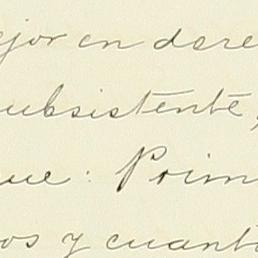 ejor en dere
subsistente,
que: Prim
os y cuant